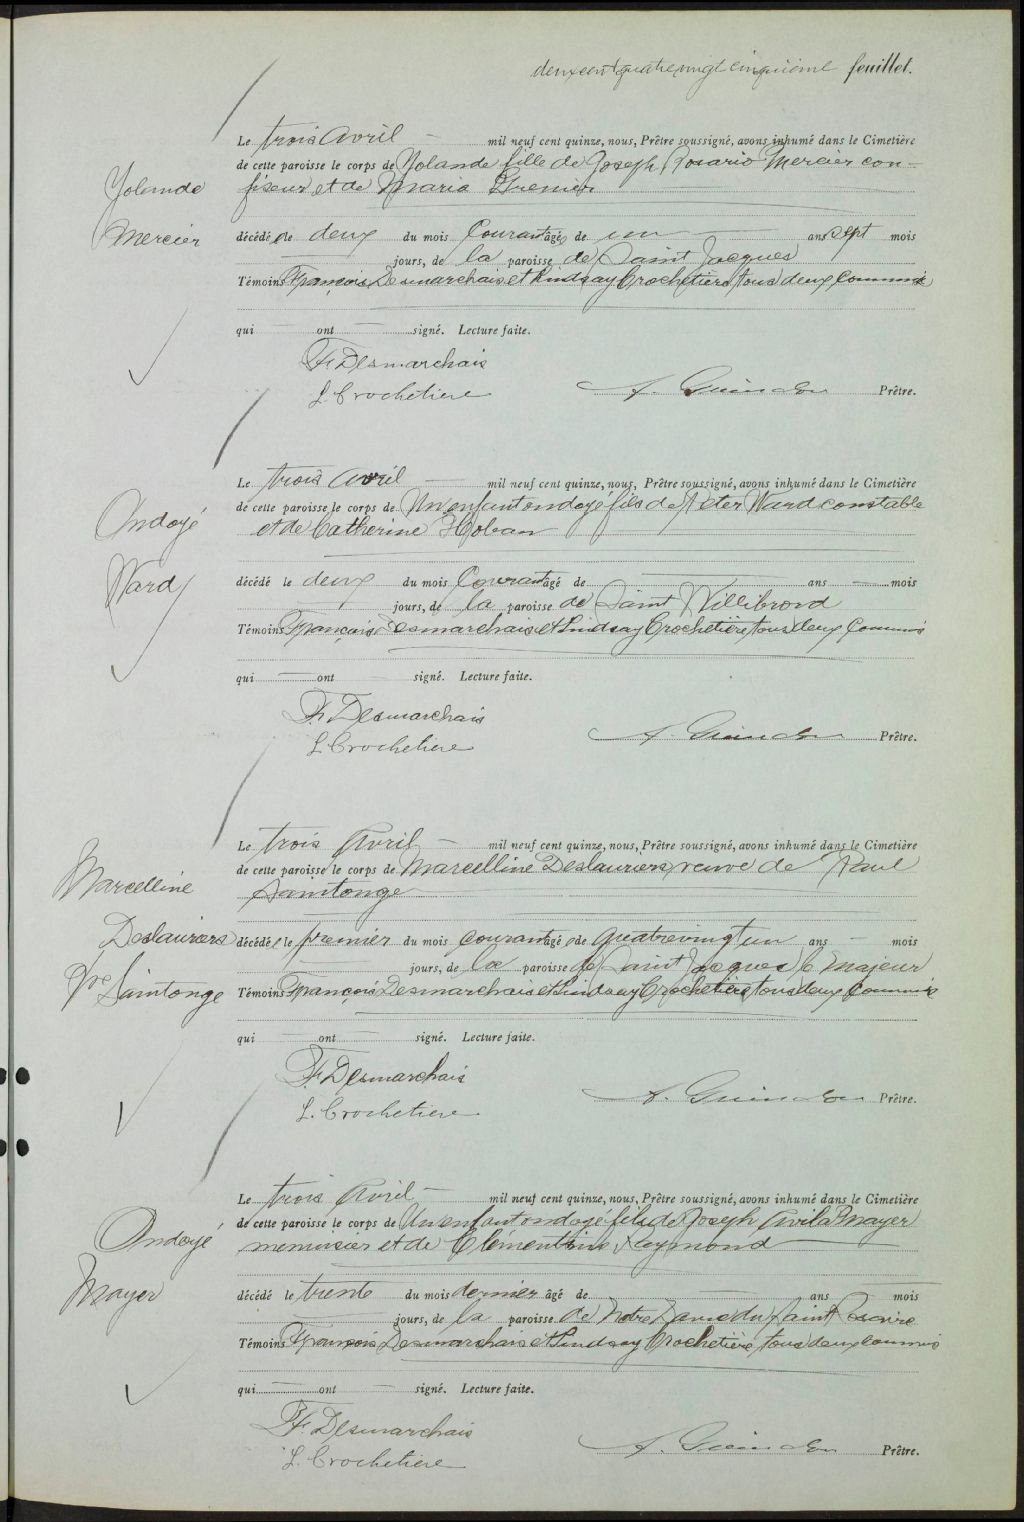 deuxcentquatrevingtcinquième feuillet.
Le trois Avril — mil neuf cent quinze, nous, Prêtre soussigné, avons inhumé dans le Cimetière
de cette paroisse le corps de Yolande fille de Joseph Rosario Mercier con-
fiseur et de Maria Grenier
Yolande
Mercier
décédée le deux du mois Courant âgée de un ans sept mois
jours, de la paroisse de Saint Jacques
Témoins François Desmarchais et Lindsay Crochetière tous deux Commis
qui — ont — signé. Lecture faite.
Fr Desmarchais
L. Crochetiere
A. Guindon Prêtre.
Le trois Avril — mil neuf cent quinze, nous, Prêtre soussigné, avons inhumé dans le Cimetière
de cette paroisse le corps de Un enfant ondoyé fils de Peter Ward constable
et de Catherine Hoban
Ondoyé
Ward
décédé le deux du mois Courant âgé de — ans — mois
jours, de la paroisse de Saint Willibrord
Témoins François Desmarchais et Lindsay Crochetière tous deux Commis
qui — ont — signé. Lecture faite.
Fr. Desmarchais
L Crochetiere
A. Guindon Prêtre.
Le trois Avril — mil neuf cent quinze, nous, Prêtre soussigné, avons inhumé dans le Cimetière
de cette paroisse le corps de Marcelline Deslauriers, veuve de Paul
Saintonge
Marcelline
Deslauriers
Vve Saintonge
décédée le premier du mois courant âgée de quatrevingt un ans — mois
jours, de la paroisse de Saint Jacques le Majeur
Témoins François Desmarchais et Lindsay Crochetière tous deux Commis
qui — ont — signé. Lecture faite.
Fr. Desmarchais
L. Crochetiere
A. Guindon Prêtre.
Le trois Avril — mil neuf cent quinze, nous, Prêtre soussigné, avons inhumé dans le Cimetière
de cette paroisse le corps de Un enfant ondoyé fils de Joseph Avila Mayer
menuisier et de Clémentine Raymond
Ondoyé
Mayer
décédé le trente du mois dernier âgé de — ans — mois
jours, de la paroisse de Notre Dame du Saint Rosaire
Témoins François Desmarchais et Lindsay Crochetière, tous deux commis
qui — ont — signé. Lecture faite.
Fr. Desmarchais
L. Crochetiere
A. Guindon Prêtre.